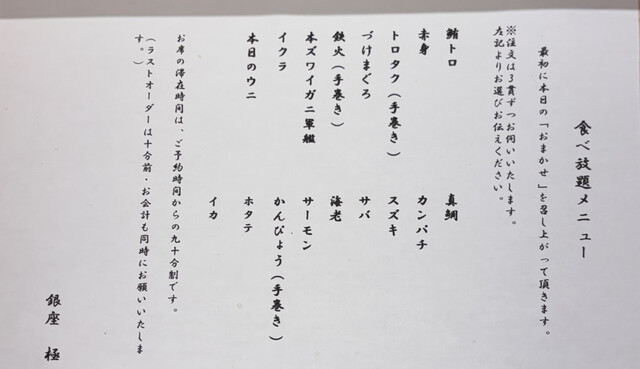 食べ放題メニュー
最初に本日の「おまかせ」を召し上がって頂きます。
※注文は３貫ずつお伺いいたします。
左記よりお選びお伝えください。
鮪トロ
赤身
トロタク（手巻き）
づけまぐろ
鉄火（手巻き）
本ズワイガニ軍艦
イクラ
本日のウニ
真鯛
カンパチ
スズキ
サバ
海老
サーモン
かんぴょう（手巻き）
ホタテ
イカ
お席の滞在時間は、ご予約時間からの九十分制です。
（ラストオーダーは十分前・お会計も同時にお願いいたしま
す。）
銀座　極